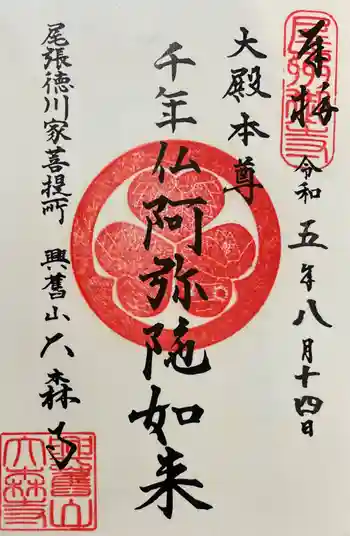 奉拝
令和五年八月十四日
大殿本尊
千年仏阿弥陀如来
尾張徳川家菩提所 興舊山大森寺
興舊山
大森寺